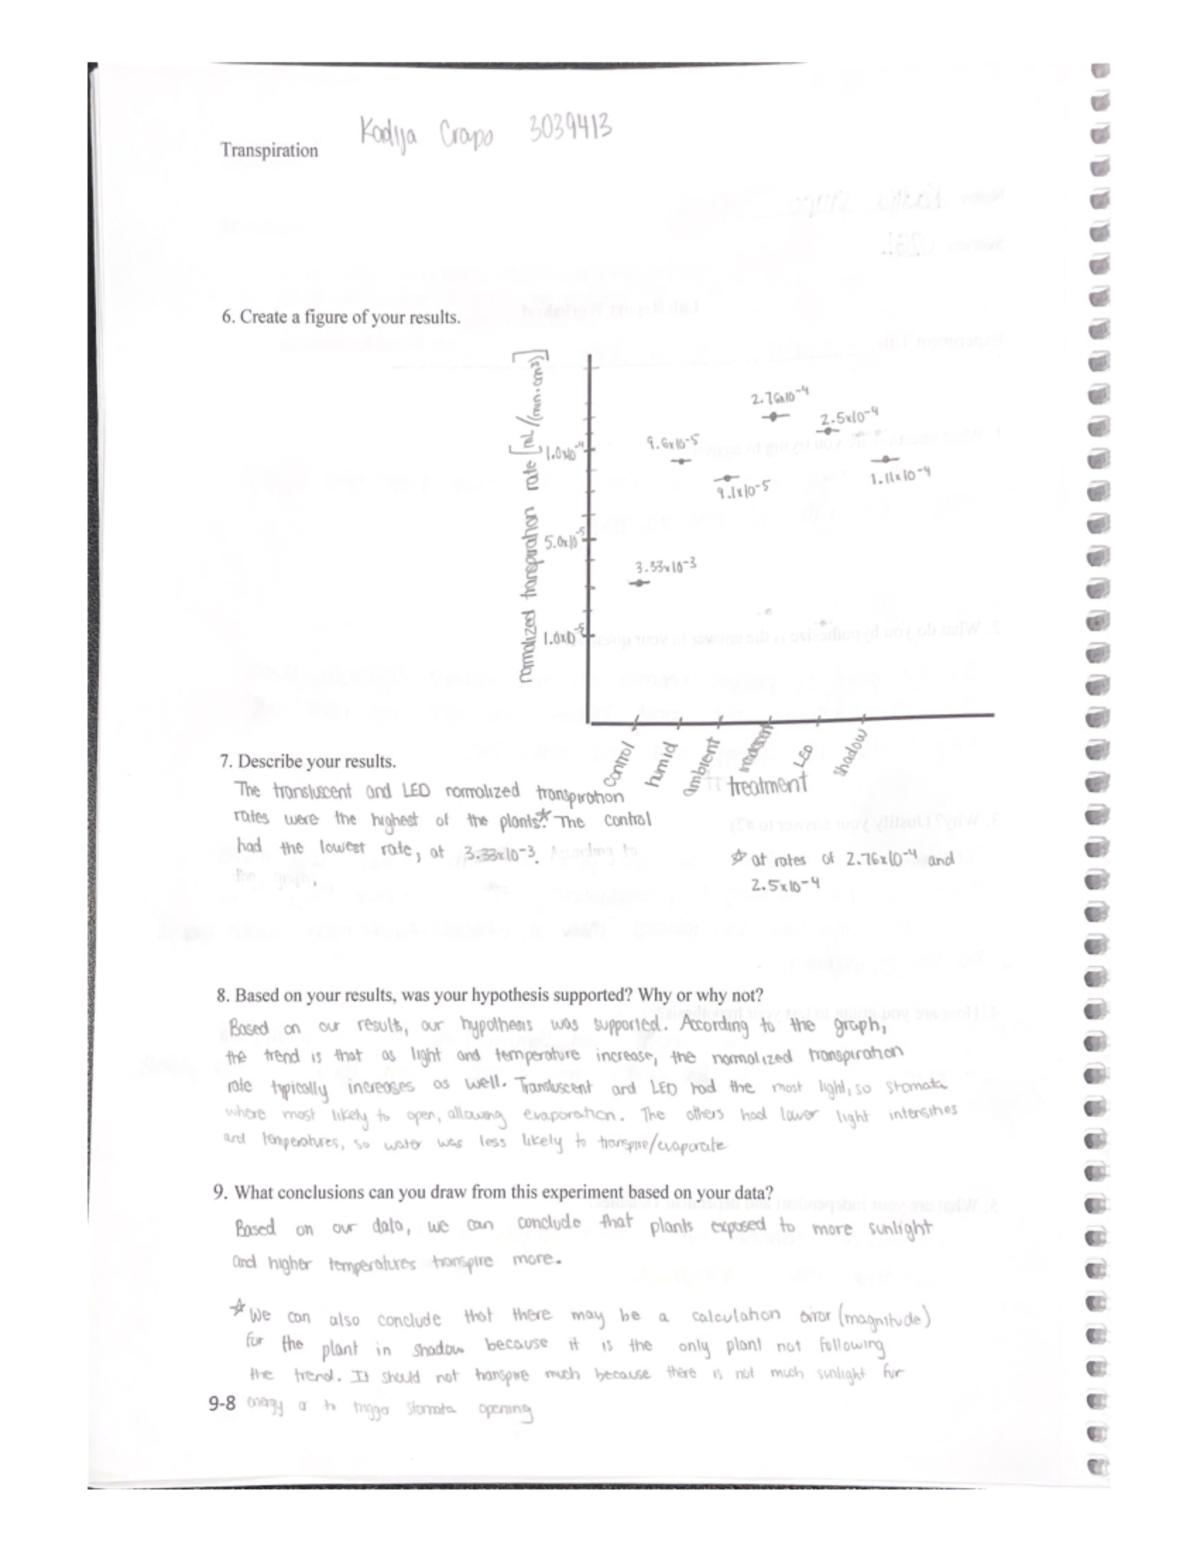 Kadija Crapo 3039413
Transpiration
6. Create a figure of your results.
normalized transpiration rate [mL/(min·cm²)]
1.0x10⁻⁴
5.0x10⁻⁵
1.0x10⁻⁵
3.33x10⁻³
9.6x10⁻⁵
9.1x10⁻⁵
2.76x10⁻⁴
2.5x10⁻⁴
1.11x10⁻⁴
Control
humid
ambient
LED
shadow
treatment
7. Describe your results.
The translucent and LED normalized transpiration
rates were the highest of the plants.☆ The control
had the lowest rate, at 3.33x10⁻³.
☆ at rates of 2.76x10⁻⁴ and
2.5x10⁻⁴
8. Based on your results, was your hypothesis supported? Why or why not?
Based on our results, our hypothesis was supported. Acording to the graph,
the trend is that as light and temperature increase, the normalized transpiration
rate typically increases as well. Translucent and LED had the most light, so stomata
where most likely to open, allowing evaporation. The others had lower light intensities
and temperatures, so water was less likely to transpire/evaporate
9. What conclusions can you draw from this experiment based on your data?
Based on our data, we can conclude that plants exposed to more sunlight
and higher temperatures transpire more.
☆ We can also conclude that there may be a calculation error (magnitude)
for the plant in shadow because it is the only plant not following
the trend. It should not transpire much because there is not much sunlight for
9-8 energy or to trigger stomata opening